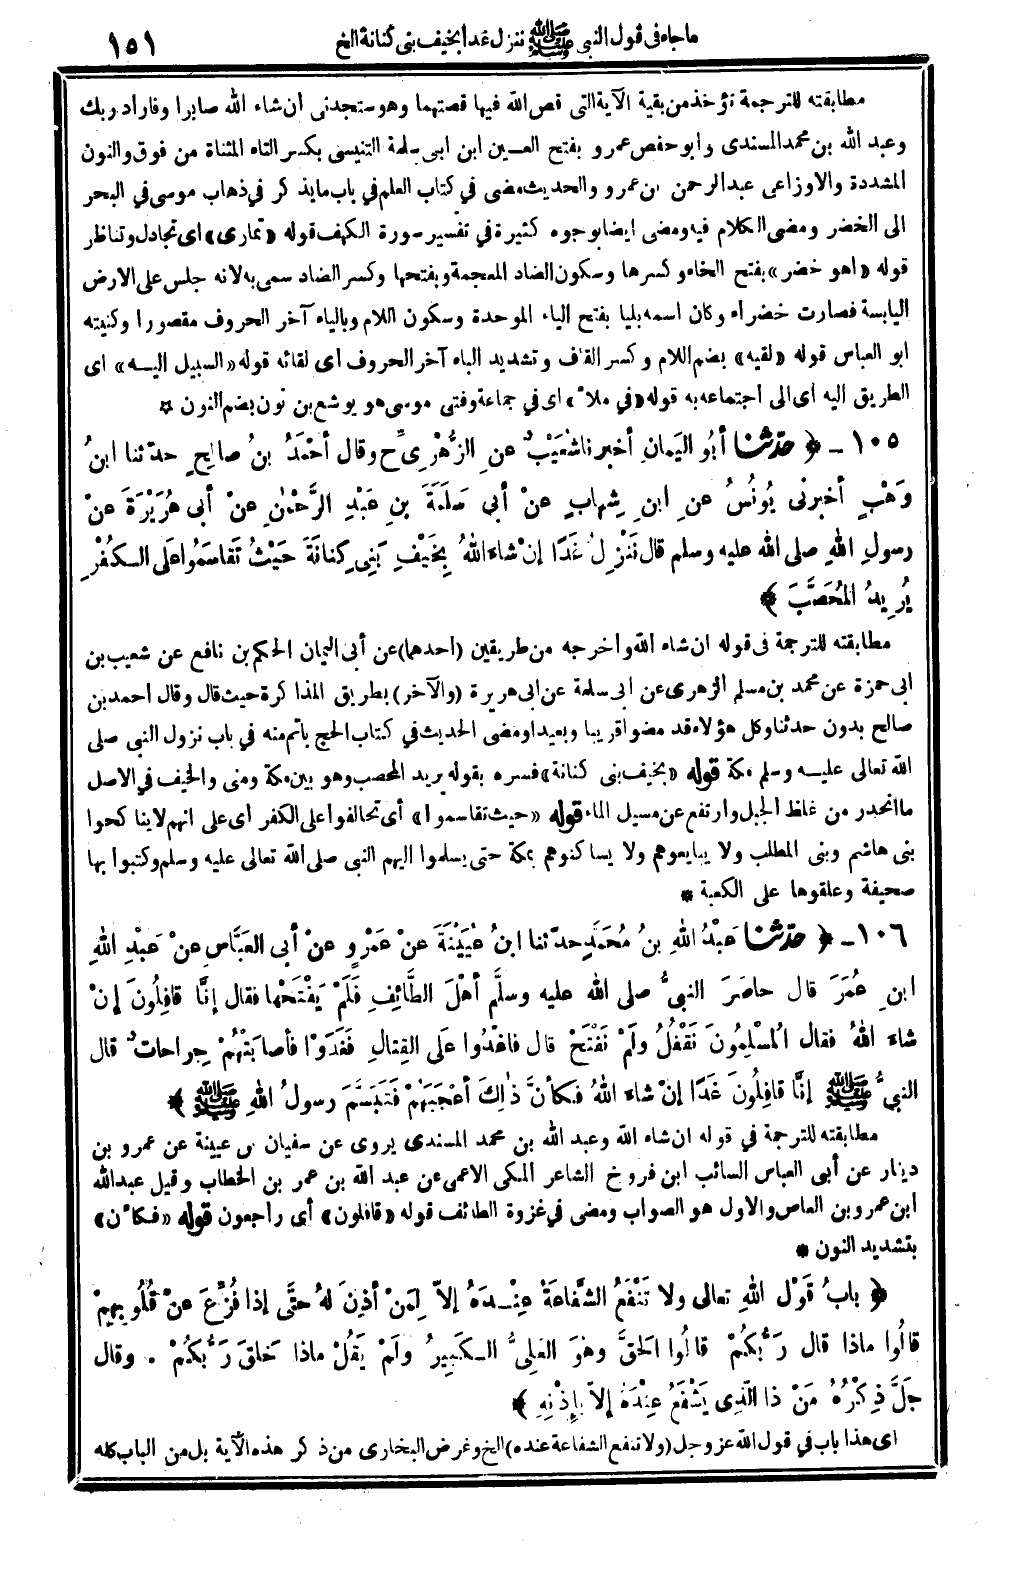 ما جاء في قول النبي ﷺ ننزل غدا بخيف بني كنانة الخ ١٥١
مطابقته للترجمة تؤخذ من بقية الآية التي قص الله فيها قصتهما وهو ستجدني ان شاء الله صابرا وفاراد ربك
وعبد الله بن محمد المسندى وابو حفص عمرو بفتح العين ابن ابى سلمة التنيسى بكسر التاء المثناة من فوق والنون
المشددة والاوزاعى عبدالرحمن بن عمرو والحديث مضى في كتاب العلم في باب ما يذكر في ذهاب موسى في البحر
الى الخضر ومضى الكلام فيه ومضى ايضا بوجوه كثيرة في تفسير سورة الكهف قوله «تمارى» اى تجادل وتناظر
قوله «اهو خضر» بفتح الخاء وكسرها وسكون الضاد المعجمة وبفتحها وكسر الضاد سمى به لانه جلس على الارض
اليابسة فصارت خضراء وكان اسمه بليا بفتح الباء الموحدة وسكون اللام وبالياء آخر الحروف مقصورا وكنيته
ابو العباس قوله «لقيه» بضم اللام وكسر القاف وتشديد الياء آخر الحروف اى لقائه قوله «السبيل اليه» اى
الطريق اليه اى الى اجتماعه به قوله «في ملأ» اى في جماعة وفتى موسى هو يوشع بن نون بضم النون *
١٠٥ ـ ﴿ حدثنا أبُو اليَمانِ أخبرنا شُعَيْبٌ عنِ الزُّهْرِيِّ ح وقال أحْمَدُ بنُ صالِحٍ حدثنا ابنُ
وَهْبٍ أخبرنى يُونُسُ عنِ ابنِ شِهابٍ عنْ أبي سَلَمَةَ بنِ عَبْدِ الرَّحْمٰنِ عنْ أبى هُرَيْرَةَ عنْ
رسولِ اللهِ صلى الله عليه وسلم قال نَنْزِلُ غَدًا إنْ شاءَ اللهُ بِخَيْفِ بَنِي كِنانَةَ حَيْثُ تَقاسَمُوا عَلَى الْكُفْرِ
يُرِيدُ المُحَصَّبَ ﴾ *
مطابقته للترجمة فى قوله ان شاء الله وأخرجه من طريقين (احدهما) عن أبى اليمان الحكم بن نافع عن شعيب بن
ابى حمزة عن محمد بن مسلم الزهرى عن ابى سلمة عن ابى هريرة (والآخر) بطريق المذاكرة حيث قال وقال احمد بن
صالح بدون حدثنا وكل هؤلاء قد مضوا قريبا وبعيدا ومضى الحديث في كتاب الحج باتم منه في باب نزول النبى صلى
الله تعالى عليه وسلم مكة قوله «بخيف بنى كنانة» فسره بقوله يريد المحصب وهو بين مكة ومنى والخيف في الاصل
ما انحدر من غلظ الجبل وارتفع عن مسيل الماء قوله «حيث تقاسموا» أى تحالفوا على الكفر اى على انهم لا يناكحوا
بنى هاشم وبنى المطلب ولا يبايعوهم ولا يساكنوهم بمكة حتى يسلموا اليهم النبى صلى الله تعالى عليه وسلم وكتبوا بها
صحيفة وعلقوها على الكعبة *
١٠٦ ـ ﴿ حدثنا عَبْدُ اللهِ بنُ مُحَمَّدٍ حدثنا ابنُ عُيَيْنَةَ عنْ عَمْرٍو عنْ أبى العَبَّاسِ عنْ عَبْدِ اللهِ
ابنِ عُمَرَ قال حاصَرَ النبيُّ صلى الله عليه وسلَّم أهْلَ الطَّائِفِ فَلَمْ يَفْتَحْها فقال إنَّا قافِلُونَ إنْ
شاءَ اللهُ فقال الْمُسْلِمُونَ نَقْفُلُ ولَمْ نَفْتَحْ قال فاغْدُوا عَلَى القِتالِ فَغَدَوْا فأصابَتْهُمْ جِراحاتٌ قال
النبيُّ ﷺ إنَّا قافِلُونَ غَدًا إنْ شاءَ اللهُ فكأنَّ ذٰلِكَ أعْجَبَهُمْ فَتَبَسَّمَ رسولُ اللهِ ﷺ ﴾ *
مطابقته للترجمة في قوله ان شاء الله وعبد الله بن محمد المسندى يروى عن سفيان بن عيينة عن عمرو بن
دينار عن أبى العباس السائب ابن فروخ الشاعر المكى الاعمى عن عبد الله بن عمر بن الخطاب وقيل عبدالله
ابن عمرو بن العاص والاول هو الصواب ومضى في غزوة الطائف قوله «قافلون» أى راجعون قوله «فكأن»
بتشديد النون *
﴿ بابُ قَوْلِ اللهِ تعالى ولا تَنْفَعُ الشَّفاعَةُ عِنْدَهُ إلاّ لِمَنْ أذِنَ لهُ حتَّى إذا فُزِّعَ عنْ قُلُوبِهِمْ
قالُوا ماذا قال رَبُّكُمْ قالُوا الحَقَّ وهْوَ العَلِيُّ الْكَبِيرُ ولَمْ يَقُلْ ماذا خَلَقَ رَبُّكُمْ . وقال
جَلَّ ذِكْرُهُ مَنْ ذا الَّذِى يَشْفَعُ عِنْدَهُ إلاّ بإذْنِهِ ﴾ *
اى هذا باب في قول الله عز وجل (ولا تنفع الشفاعة عنده) الخ وغرض البخارى من ذكر هذه الآية بل من الباب كله